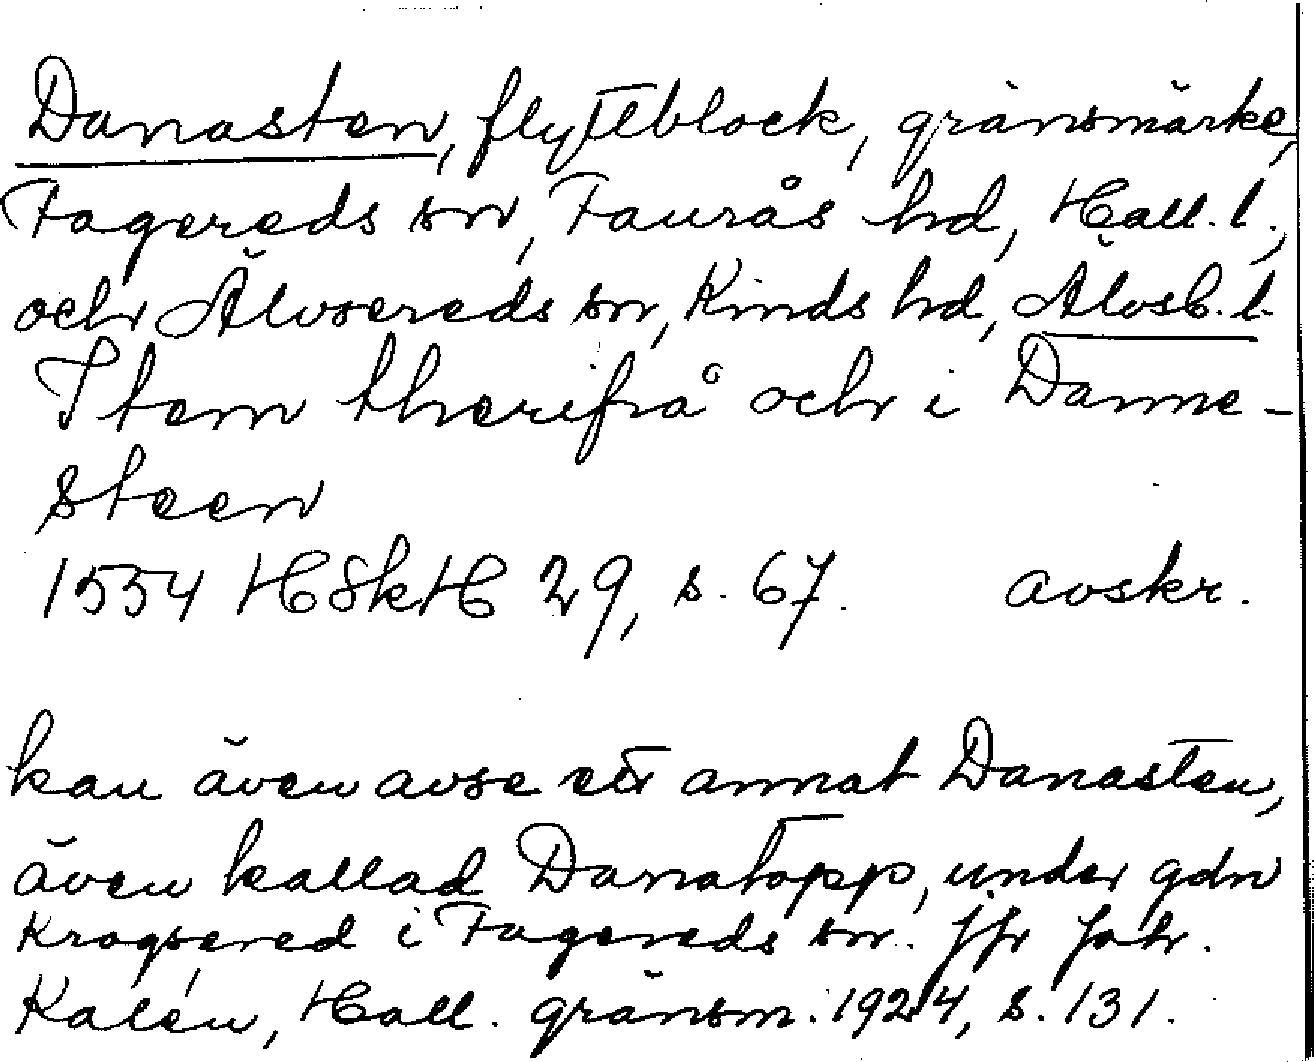 Danasten, flyttblock, gränsmärke,
Fagereds sn, Faurås hd, Hall. l.,
och Älvsereds sn, Kinds hd, Älvsb. l.
Item therifrå och i Danne-
steen
1554 HSkH 29, s. 67. avskr.
kan även avse ett annat Danasten,
även kallad Danatopp, under gdn
Krogsered i Fagereds sn. jfr Joh.
Kalén, Hall. gränsm. 1924, s. 131.